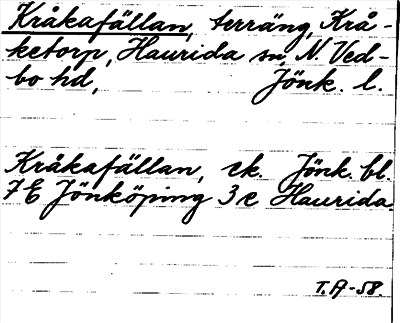 Kråkafällan, terräng, Krå-
ketorp, Haurida sn, N. Ved-
bo hd, Jönk. l.
Kråkafällan, ek. Jönk. bl.
7 E Jönköping 3 e Haurida.
T.A-58.